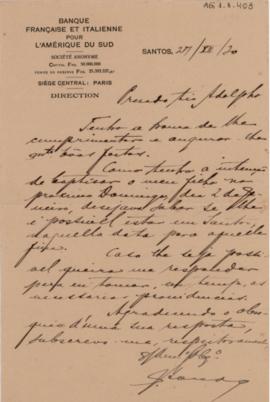 AG 1.1.403
BANQUE
FRANÇAISE ET ITALIENNE
POUR
L'AMÉRIQUE DU SUD
SOCIÉTÉ ANONYME
SIÈGE CENTRAL: PARIS
DIRECTION
SANTOS, 27/XII/20
Presado tio Adolpho
Tenho a honra de lhe
cumprimentar e augurar-lhe
boas festas.
Como tenho a intenção
de baptisar o meu filho no
proximo Domingo, dia 2 de Ja-
neiro, desejava saber se lhe
é possivel estar em Santos
naquella data para aquelle
fim.
Caso lhe seja possi-
vel queira me responder
para eu tomar, em tempo, as
necessarias providencias.
Agradecendo o obse-
quio d'uma sua resposta,
subscrevo-me, respeitosamente